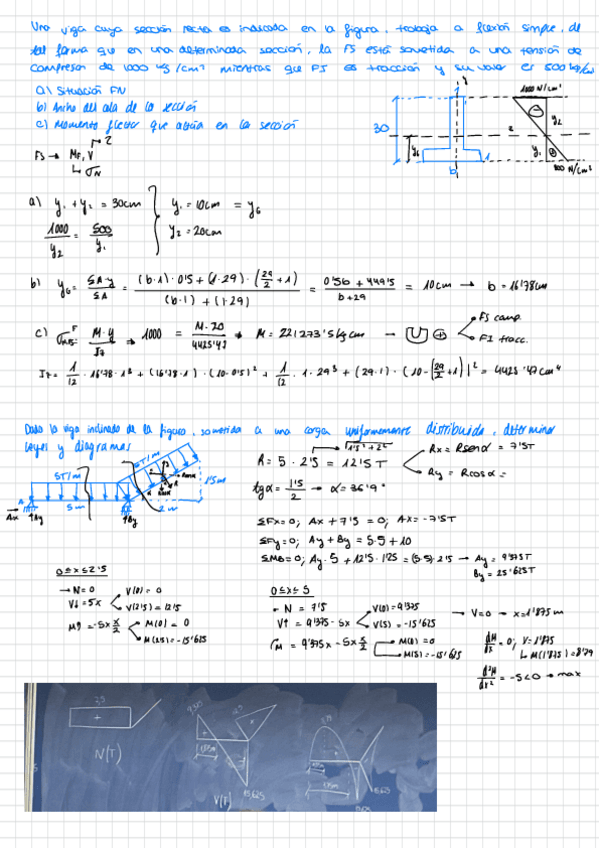 Una viga cuya sección recta es indicada en la figura, trabaja a flexión simple, de
tal forma que en una determinada sección, la FS está sometida a una tensión de
compresión de 1000 kg/cm² mientras que FI es tracción y su valor es 500 kg/cm²
a) Situación FN
b) Ancho del ala de la sección
c) Momento flector que actúa en la sección
FS → MF, V
↳ σN
1
y
1000 N/cm²
30
z
y₂
yG
y₁
b
1
500 N/cm²
a) y₁ + y₂ = 30cm
1000/y₂ = 500/y₁
y₁ = 10cm = yG
y₂ = 20cm
b) yG = ΣA·y/ΣA = (b·1)·0'5 + (1·29)·(29/2 + 1) / (b·1) + (1·29) = 0'5b + 449'5 / b + 29 = 10cm → b = 16'78cm
c) M·y/Iz ⇒ 1000 = M·20/4425'47 → M = 221273'5 kg cm
FS comp.
FI tracc.
Iz = 1/12 · 16'78 · 1³ + (16'78·1) · (10-0'5)² + 1/12 · 1·29³ + (29·1) · (10-(29/2+1))² = 4425'47cm⁴
Dada la viga inclinada de la figura, sometida a una carga uniformemente distribuida, determinar
leyes y diagramas
5T/m
5T/m
1'5m
5m
2m
Ax
Ay
By
√1'5² + 2²
R = 5 · 2'5 = 12'5T
Rx = R senα = 7'5T
Ry = R cosα =
tgα = 1'5/2 → α = 36'9°
ΣFx=0; Ax + 7'5 = 0; Ax = -7'5T
ΣFy=0; Ay + By = 5·5 + 10
ΣMB=0; Ay·5 + 12'5·1'25 = (5·5)·2'5 → Ay = 9'375T
By = 25'625T
0≤x≤2'5
→ N=0
V↓=5x
V(0) = 0
V(2'5) = 12'5
M = -5x·x/2
M(0) = 0
M(2'5) = -15'625
0≤x≤5
- N = 7'5
V↑ = 9'375 - 5x
V(0) = 9'375
V(5) = -15'625
→ V=0 → x=1'875m
M = 9'375x - 5x·x/2
M(0) = 0
M(5) = -15'625
dM/dx = 0; V=1'875
↳ M(1'875) = 8'79
d²M/dx² = -5<0 → max
N(T)
V(T)
15,625